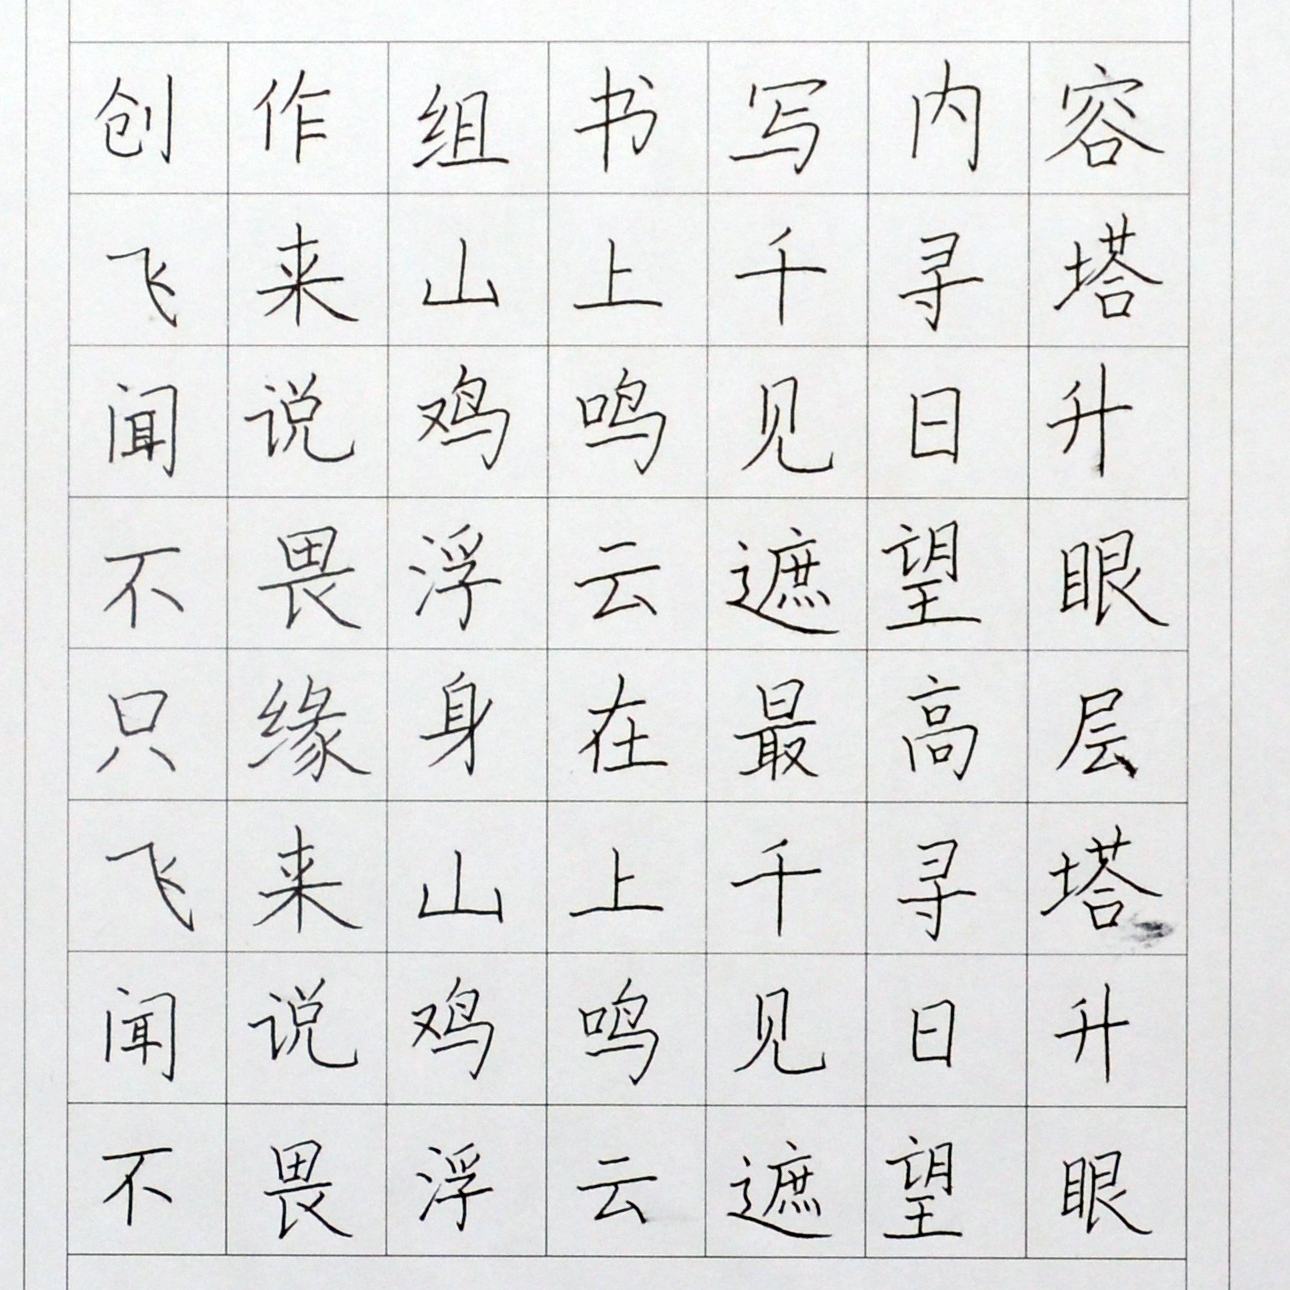 创作组书写内容
飞来山上千寻塔
闻说鸡鸣见日升
不畏浮云遮望眼
只缘身在最高层
飞来山上千寻塔
闻说鸡鸣见日升
不畏浮云遮望眼